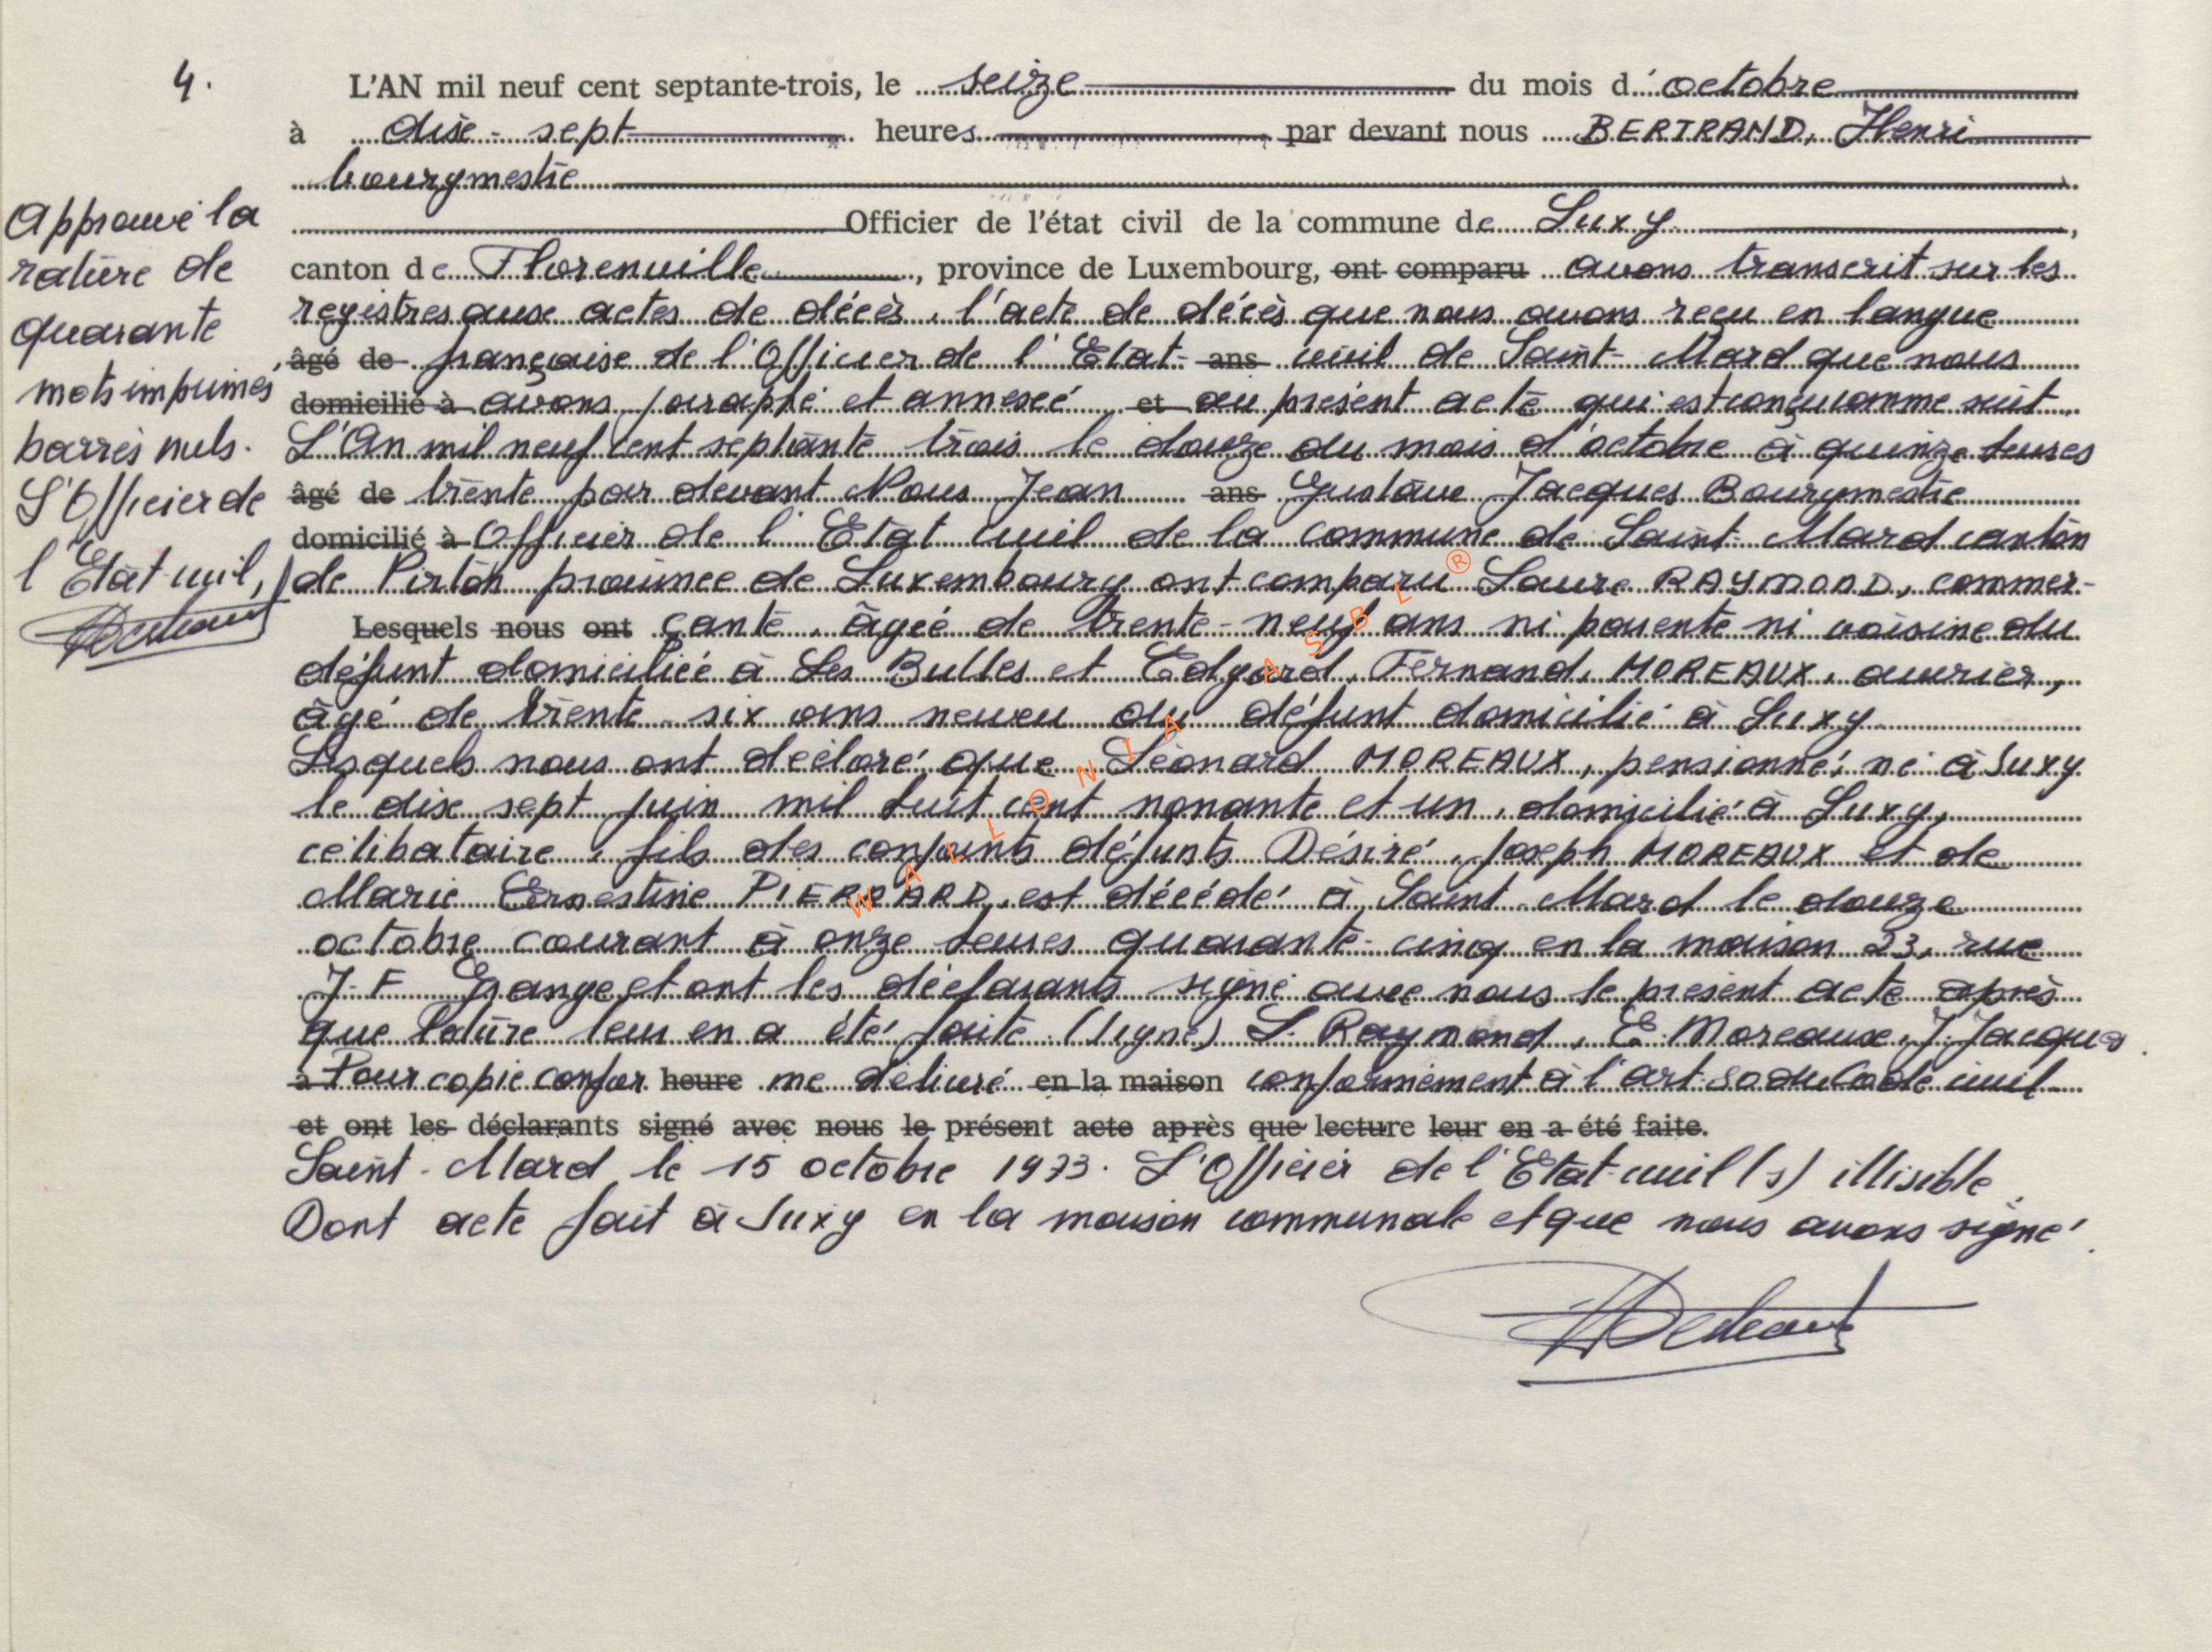 4.
L'AN mil neuf cent septante-trois, le seize du mois d'octobre
à dix-sept heures par devant nous BERTRAND, Henri
bourgmestre
Officier de l'état civil de la commune de Suxy,
canton de Florenville, province de Luxembourg, ont comparu avons transcrit sur les
registres aux actes de décès, l'acte de décès que nous avons reçu en langue
âgé de française de l'Officier de l'Etat- ans civil de Saint-Mard que nous
domicilié à avons paraphé et annexé, et au présent acte qui est conçu comme suit.
L'An mil neuf cent septante trois le douze du mois d'octobre à quinze heures
âgé de trente par devant Nous Jean ans Gustave Jacques Bourgmestre
domicilié à Officier de l'Etat civil de la commune de Saint-Mard canton
de Virton province de Luxembourg ont comparu Laure RAYMOND, commer-
Lesquels nous ont çante, âgée de trente-neuf ans ni parente ni voisine du
défunt domiciliée à Les Bulles et Edgard, Fernand, MOREAUX, ouvrier,
âgé de trente six ans neveu du défunt domicilié à Suxy
Lesquels nous ont déclaré que Léonard MOREAUX, pensionné, né à Suxy
le dix sept juin mil huit cent nonante et un, domicilié à Suxy,
célibataire, fils des conjoints défunts Désiré, Joseph MOREAUX et de
Marie Ernestine PIERRARD, est décédé à Saint-Mard le douze
octobre courant à onze heures quarante-cinq en la maison 23, rue
J-F Grange et ont les déclarants signé avec nous le présent acte après
que lecture leur en a été faite. (signé) L. Raymond, E. Moreaux, J. Jacques.
à Pour copie confor heure me délivré en la maison conformément à l'art. 80 du Code civil
et ont les déclarants signé avec nous le présent acte après que lecture leur en a été faite.
Saint-Mard le 15 octobre 1973. L'Officier de l'Etat-civil (s) illisible.
Dont acte fait à Suxy en la maison communale et que nous avons signé.
Approuvé la
rature de
quarante
mots imprimés
barrés nuls.
L'Officier de
l'Etat civil,
WALLONIA ASBL ®